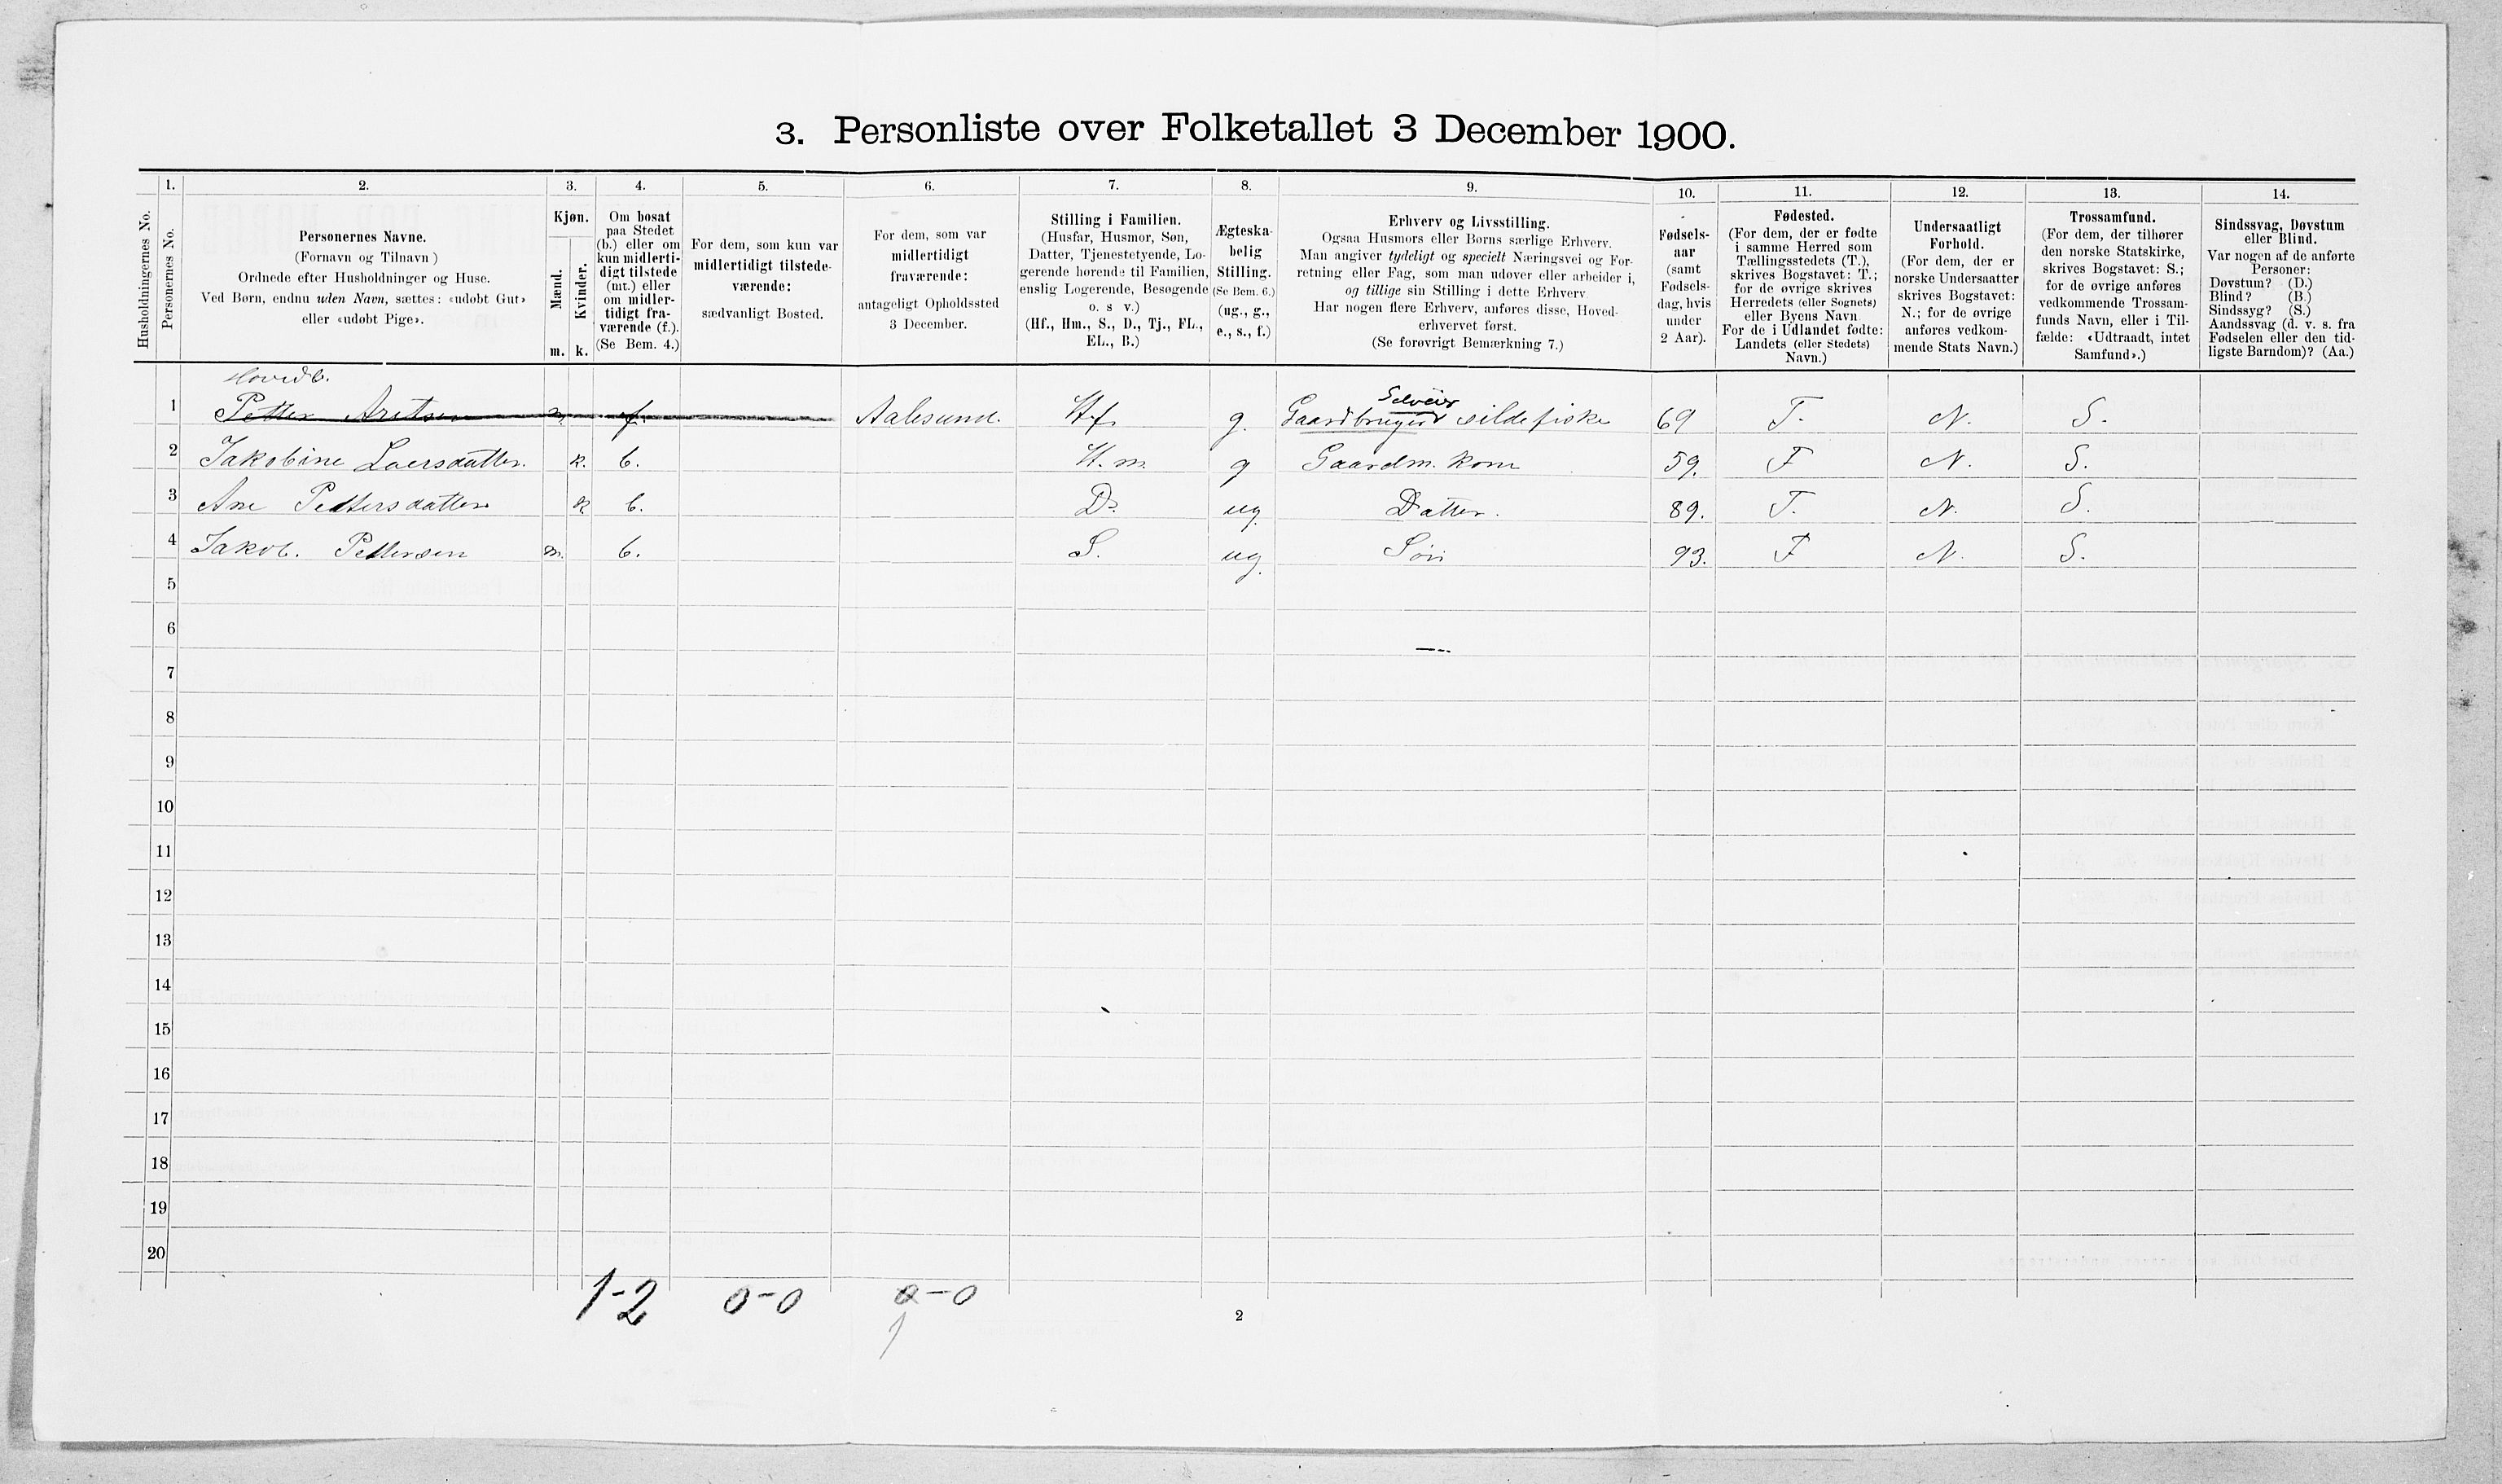 3. Personliste over Folketallet 3 December 1900.
1. 2. 3. 4. 5. 6. 7. 8. 9. 10. 11. 12. 13. 14.
Husholdningernes No.
Personernes No.
Personernes Navne.
(Fornavn og Tilnavn)
Ordnede efter Husholdninger og Huse.
Ved Børn, endnu uden Navn, sættes: «udøbt Gut»
eller «udøbt Pige».
Kjøn.
Mænd.
Kvinder.
m. k.
Om bosat
paa Stedet
(b.) eller om
kun midlerti-
digt tilstede
(mt.) eller
om midler-
tidigt fra-
værende (f.).
(Se Bem. 4.)
For dem, som kun var
midlertidigt tilstede-
værende:
sædvanligt Bosted.
For dem, som var
midlertidigt
fraværende:
antageligt Opholdssted
3 December.
Stilling i Familien.
(Husfar, Husmor, Søn,
Datter, Tjenestetyende, Lo-
gerende hørende til Familien,
enslig Logerende, Besøgende
o. s v.)
(Hf., Hm., S., D., Tj., FL.,
EL., B.)
Ægteska-
belig
Stilling.
(Se Bem. 6.)
(ug., g.,
e., s., f.)
Erhverv og Livsstilling.
Ogsaa Husmors eller Børns særlige Erhverv.
Man angiver tydeligt og specielt Næringsvei og For-
retning eller Fag, som man udøver eller arbeider i,
og tillige sin Stilling i dette Erhverv
Har nogen flere Erhverv, anføres disse, Hoved-
erhvervet først.
(Se forøvrigt Bemærkning 7.)
Fødsels-
aar
(samt
Fødsels-
dag, hvis
under
2 Aar).
Fødested.
(For dem, der er fødte
i samme Herred som
Tællingsstedets (T.),
skrives Bogstavet: T.;
for de øvrige skrives
Herredets (eller Sognets)
eller Byens Navn
For de i Udlandet fødte:
Landets (eller Stedets)
Navn.)
Undersaatligt
Forhold.
(For dem, der er
norske Undersaatter
skrives Bogstavet:
N.; for de øvrige
anføres vedkom-
mende Stats Navn.)
Trossamfund.
(For dem, der tilhører
den norske Statskirke,
skrives Bogstavet: S.;
for de øvrige anføres
vedkommende Trossam-
funds Navn, eller i Til-
fælde: «Udtraadt, intet
Samfund».)
Sindssvag, Døvstum
eller Blind.
Var nogen af de anførte
Personer:
Døvstum? (D.)
Blind? (B.)
Sindssyg? (S.)
Aandssvag (d. v. s. fra
Fødselen eller den tid-
ligste Barndom)? (Aa.)
Hovedb.
Selveier
1 Petter Aretsen m f. Aalesund. H.f. g. Gaardbruger sildefiske 69 T. N. S.
2 Jakobine Loersdatter. k. b. H.m. g Gaardm. kone 59. T N. S.
3 Ane Pettersdatter k b. D. ug. Datter. 89. T. N. S.
4 Jakob. Pettersen m. b. S. ug. Søn 93. T N. S.
5
6
7
8
9
10
11
12
13
14
15
16
17
18
19
20
1-2 0-0 0-0
1
2